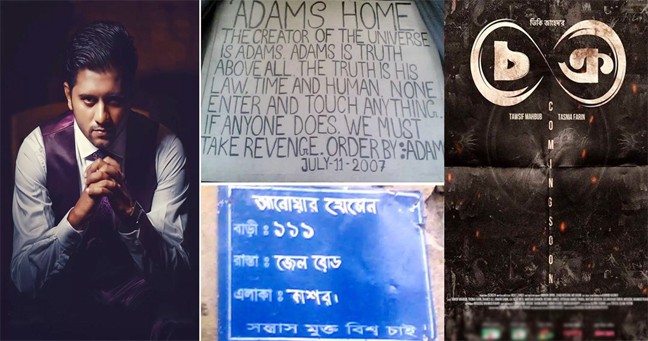 'ADAMS HOME'
THE CREATOR OF THE UNIVERSE
IS ADAMS. ADAMS IS TRUTH
ABOVE ALL THE TRUTH IS HIS
LAW, TIME AND HUMAN. NONE
ENTER AND TOUCH ANYTHING.
IF ANYONE DOES, WE MUST
TAKE REVENGE. ORDER BY:ADAM
JULY-11-2007
আনোয়ার হোসেন
বাড়ী : ১১১
রাস্তা : জেল রোড
এলাকা : যশোর।
সন্ত্রাস মুক্ত বিশ্ব চাই
ভিকি জাহেদ'র
চক্র
TAWSIF MAHBUB TASNIA FARIN
COMING SOON